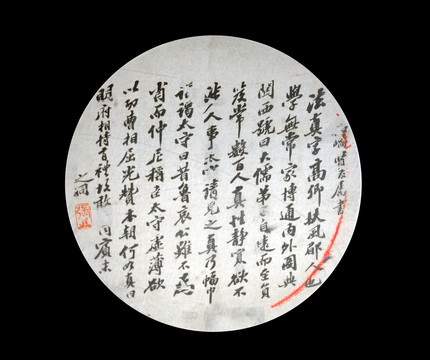 法真字高卿扶風郿人也
學無常家博通內外圖典
關西號曰大儒弟子自遠而至負
笈常數百人真性靜寡欲不
涉人事太守請見之真乃幅巾
詣謁太守曰昔魯哀公雖不
肖而仲尼稱臣太守虛薄欲
以功曹相屈光贊本朝何如真曰
明府相待有禮故敢同賓末